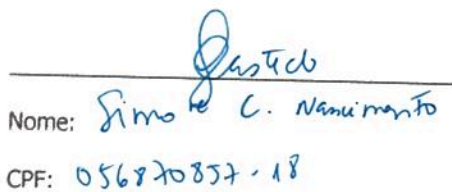 Nome: Simone C. Nascimento
CPF: 056870857-18